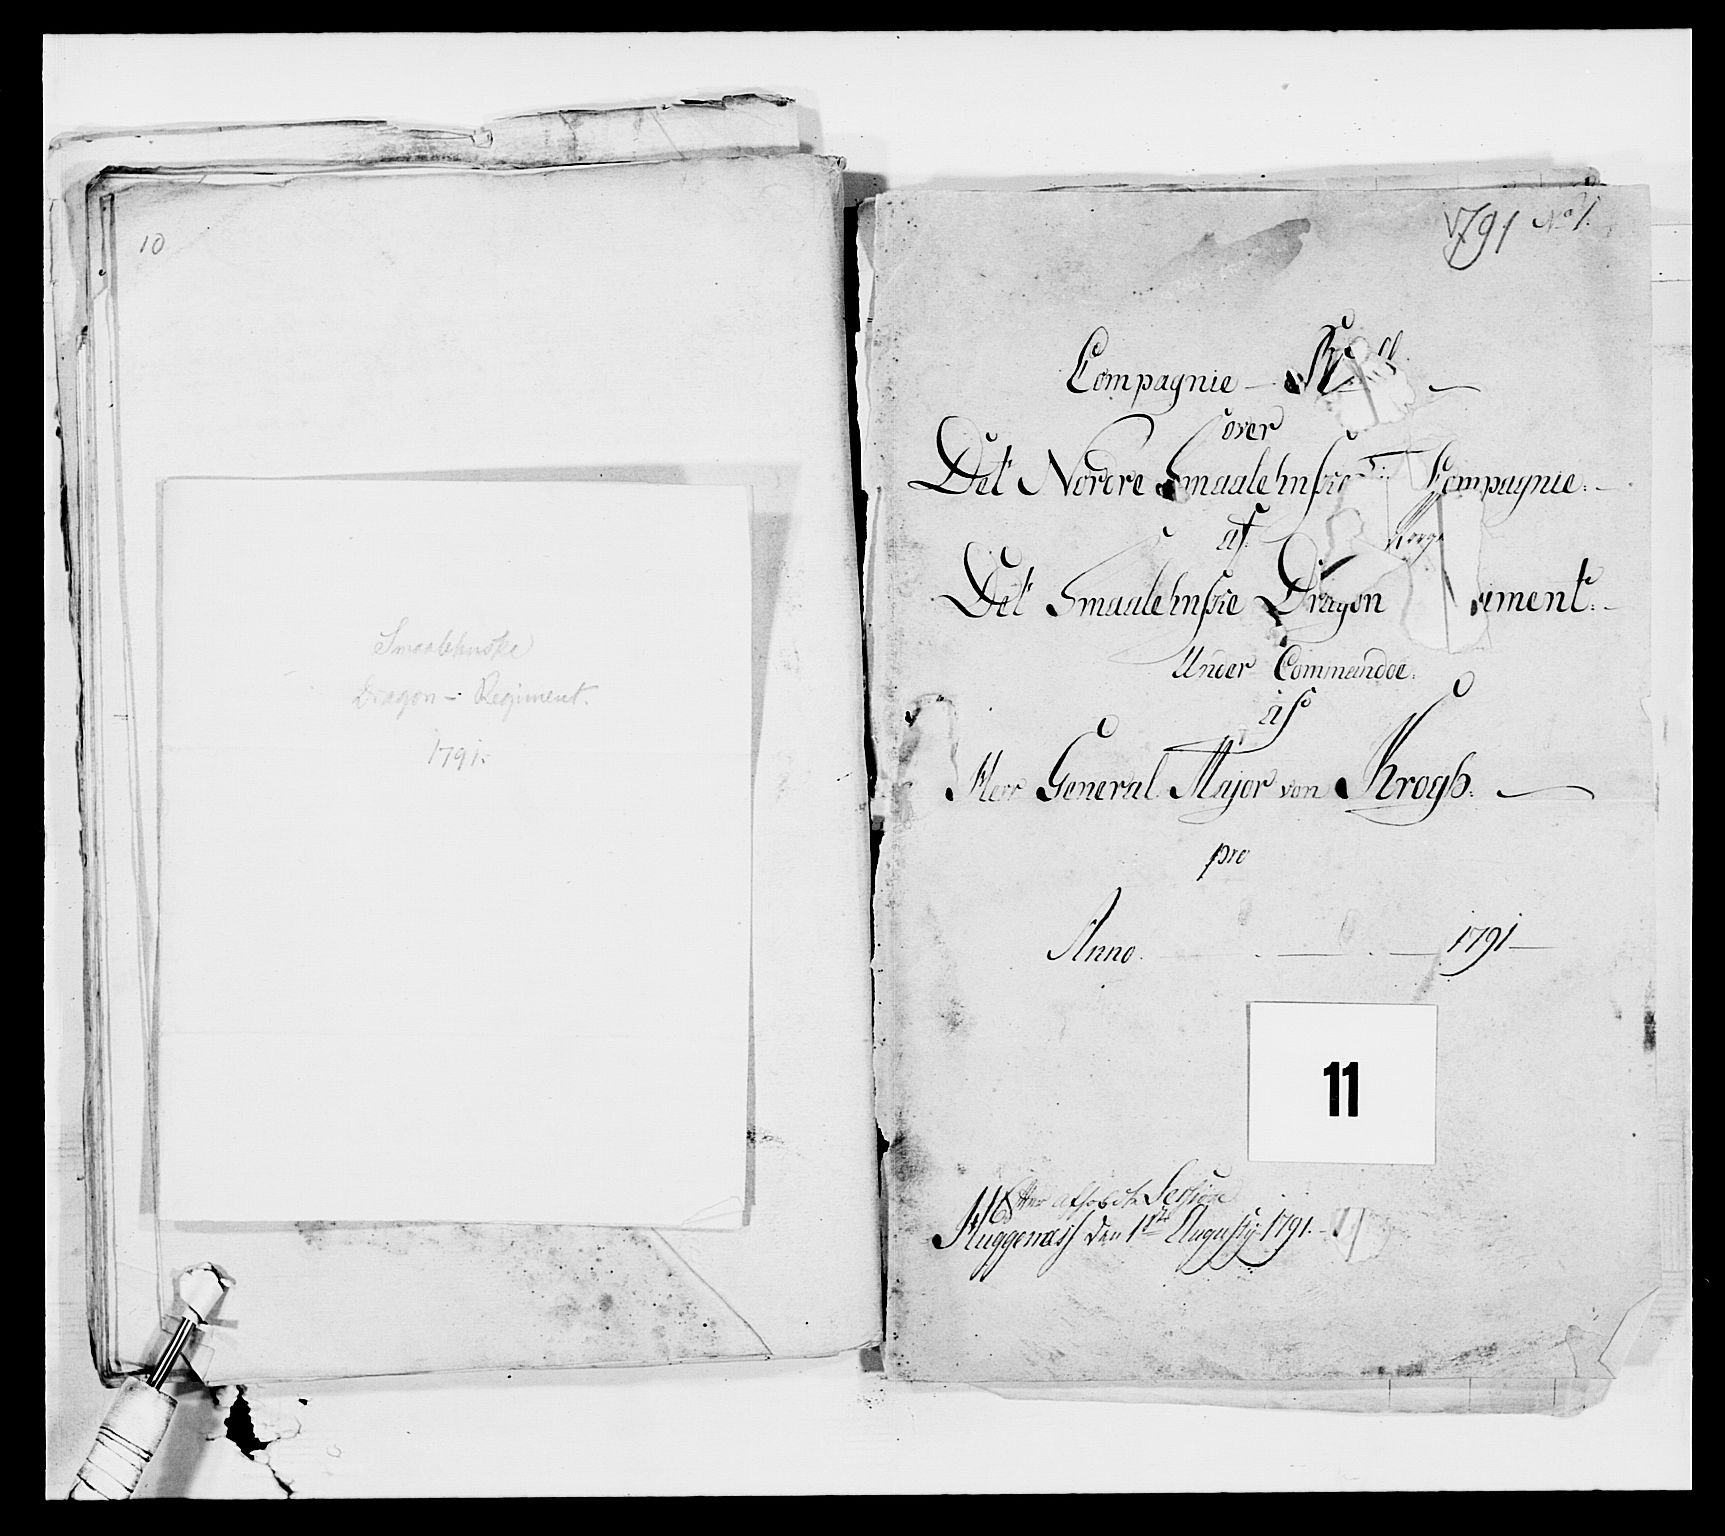 10
Smaalehnske
Dragon - Regiment.
1791.
1791 No 1.
Compagnie
over
Det Nordre Smaalehnske Compagnie.
af
Det Smaalehnske Dragon iment.
Under Commandoe.
af
Herr General Major von Krogh.
pro
Anno. 1791
11
Efter afholdte Sessjon
Huggenæss den 1ste Augusty 1791.